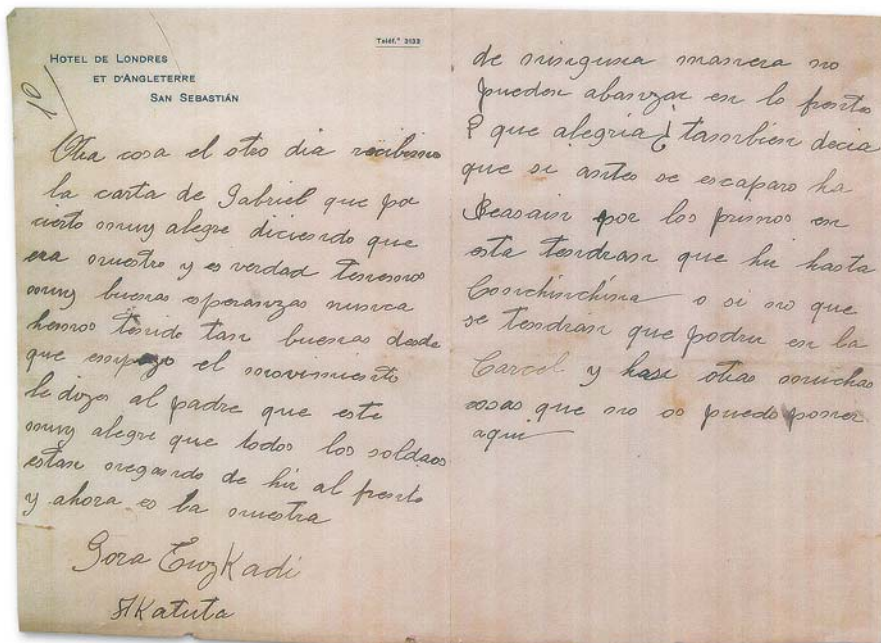 Teléf.º 3122
HOTEL DE LONDRES
ET D'ANGLETERRE
SAN SEBASTIÁN
Otra cosa el otro dia recibimo
la carta de Gabriel que por
cierto muy alegre diciendo que
era nuestro y es verdad tenemos
muy buenas esperanzas nunca
hemos tenido tan buenas desde
que empezo el movimiento
le dizes al padre que este
muy alegre que todos los soldaos
estan negando de hir al frente
y ahora es la nuestra
Gora EuzKadi
AsKatuta
de ninguna manera no
pueden abanzar en lo frentes
que alegria tambien decia
que si antes se escaparo ha
Beasain por los primos en
esta tendran que hir hasta
Conchinchina o si no que
se tendran que podrir en la
Carcel y hase otras muchas
cosas que no os puedo poner
aqui